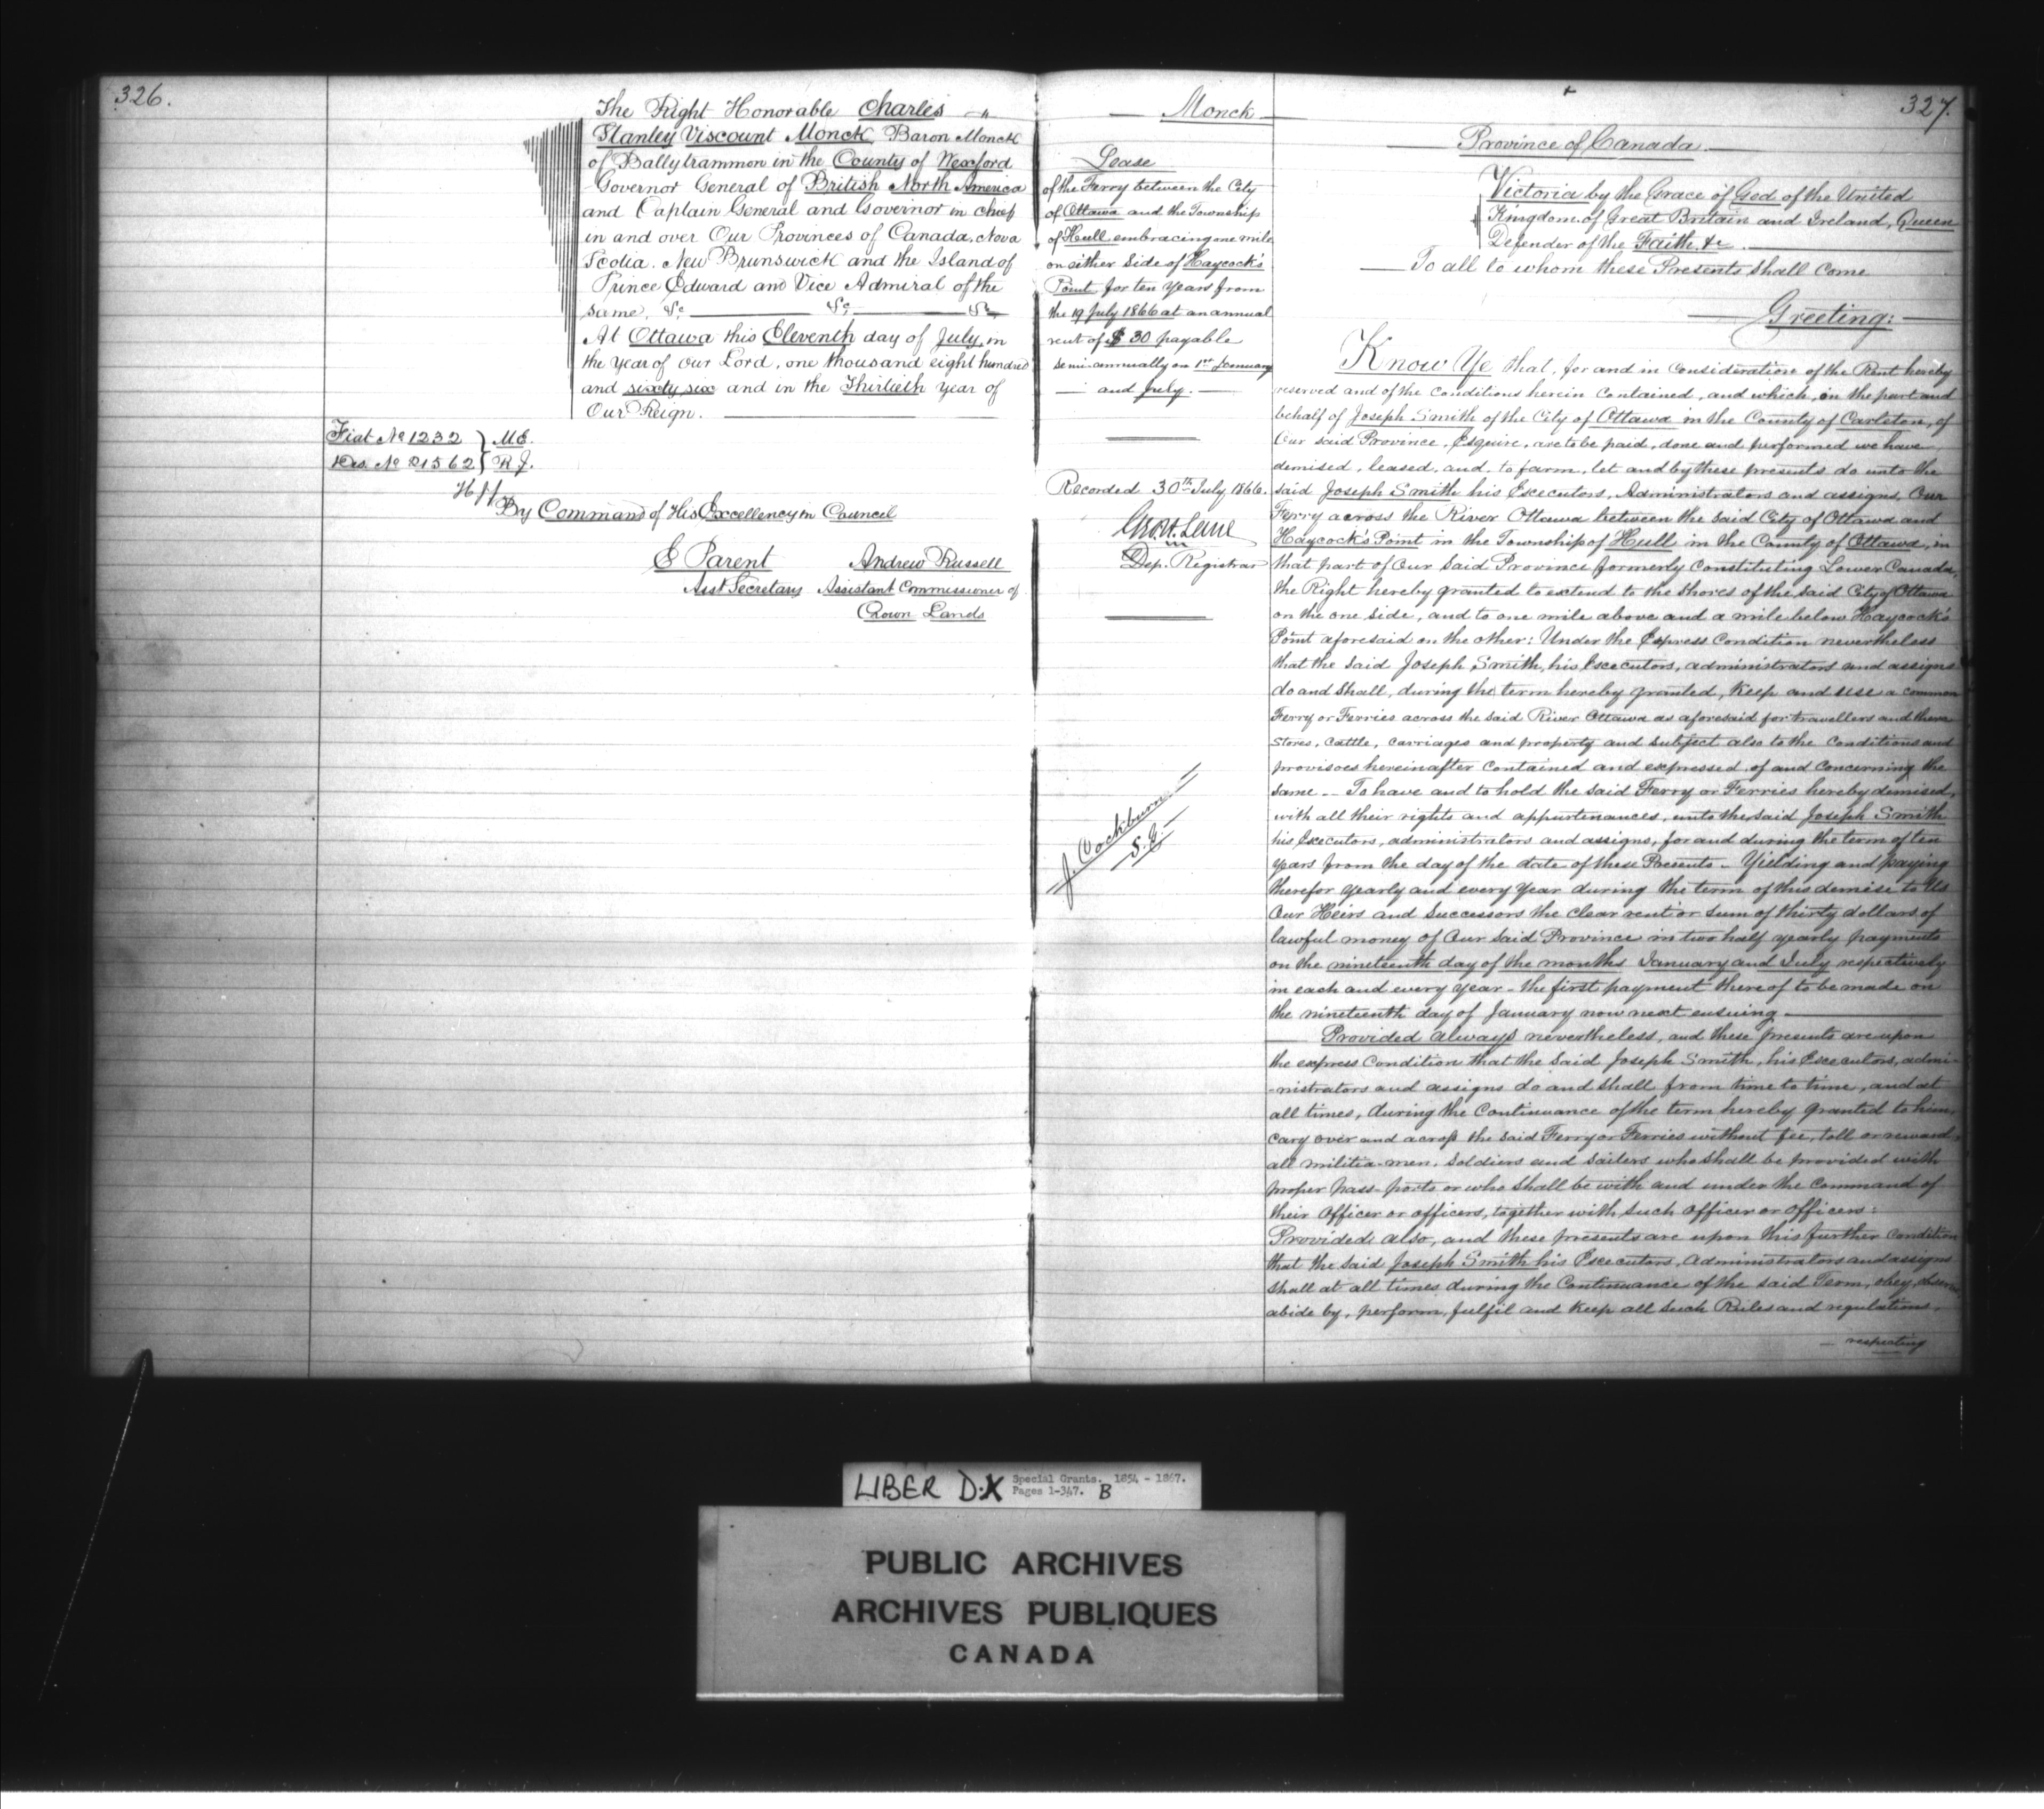 326.
The Right Honorable Charles
Stanley Viscount Monck, Baron Monck
of Ballytrammon in the County of Wexford
Governor General of British North America
and Captain General and Governor in chief
in and over Our Provinces of Canada, Nova
Scotia, New Brunswick and the Island of
Prince Edward and Vice Admiral of the
same, &c &c &c
At Ottawa this Eleventh day of July, in
the year of Our Lord, one thousand eight hundred
and sixty six and in the Thirtieth year of
Our Reign.
Fiat No 1232 } M.C.
Des. No 21562 } R.J.
By Command of His Excellency in Council
E Parent Andrew Russell
Asst Secretary Assistant Commissioner of
Crown Lands
Monck
Lease
of the Ferry between the City
of Ottawa and the Township
of Hull embracing one mile
on either side of Haycock's
Point for ten years from
the 19 July 1866 at an annual
rent of $30 payable
semi-annually on 1st January
and July.
Recorded 30th July, 1866.
Dep. Registrar
J. Cockburn
327.
Province of Canada.
Victoria by the Grace of God of the United
Kingdom of Great Britain and Ireland, Queen
Defender of the Faith &c.
To all to whom these Presents shall come
Greeting:
Know Ye that, for and in Consideration of the Rent hereby
reserved and of the Conditions herein Contained, and which, on the part and
behalf of Joseph Smith of the City of Ottawa in the County of Carleton, of
Our said Province, Esquire, are to be paid, done and performed we have
demised, leased, and to farm, let and by these presents do unto the
said Joseph Smith his Executors, Administrators and assigns, Our
Ferry across the River Ottawa between the said City of Ottawa and
Haycock's Point in the Township of Hull in the County of Ottawa, in
that part of Our Said Province formerly Constituting Lower Canada,
the Right hereby granted to extend to the shores of the said City of Ottawa
on the one side, and to one mile above and a mile below Haycock's
Point aforesaid on the other: Under the Express Condition nevertheless
that the said Joseph Smith, his Executors, administrators and assigns
do and shall, during the term hereby granted, keep and use a common
Ferry or Ferries across the said River Ottawa as aforesaid for travellers and there
Stores, Cattle, Carriages and property and subject also to the Conditions and
provisoes hereinafter Contained and expressed of and Concerning the
same -- To have and to hold the said Ferry or Ferries hereby demised,
with all their rights and appurtenances, unto the said Joseph Smith
his Executors, administrators and assigns, for and during the term of ten
years from the day of the date of these Presents - Yielding and paying
therefor yearly and every year during the term of this demise to Us
Our Heirs and Successors the clear rent or sum of thirty dollars of
lawful money of Our said Province in two half yearly payments
on the nineteenth day of the months January and July respectively
in each and every year - the first payment thereof to be made on
the nineteenth day of January now next ensuing
Provided always nevertheless, and these presents are upon
the express Condition that the said Joseph Smith, his Executors, admi-
-nistrators and assigns do and shall from time to time, and at
all times, during the Continuance of the term hereby granted to him,
cary over and across the said Ferry or Ferries without fee, toll or reward,
all militia-men, soldiers and sailers who shall be provided with
proper pass-ports or who shall be with and under the Command of
their Officer or officers, together with such officer or officers:
Provided, also, and these presents are upon this further condition
that the said Joseph Smith his Executors, Administrators and assigns
shall at all times during the Continuance of the said Term, obey, observe
abide by, perform, fulfil and keep all such Rules and regulations,
respecting
LIBER D.X Special Grants. 1854 - 1867.
Pages 1-347. B
PUBLIC ARCHIVES
ARCHIVES PUBLIQUES
CANADA